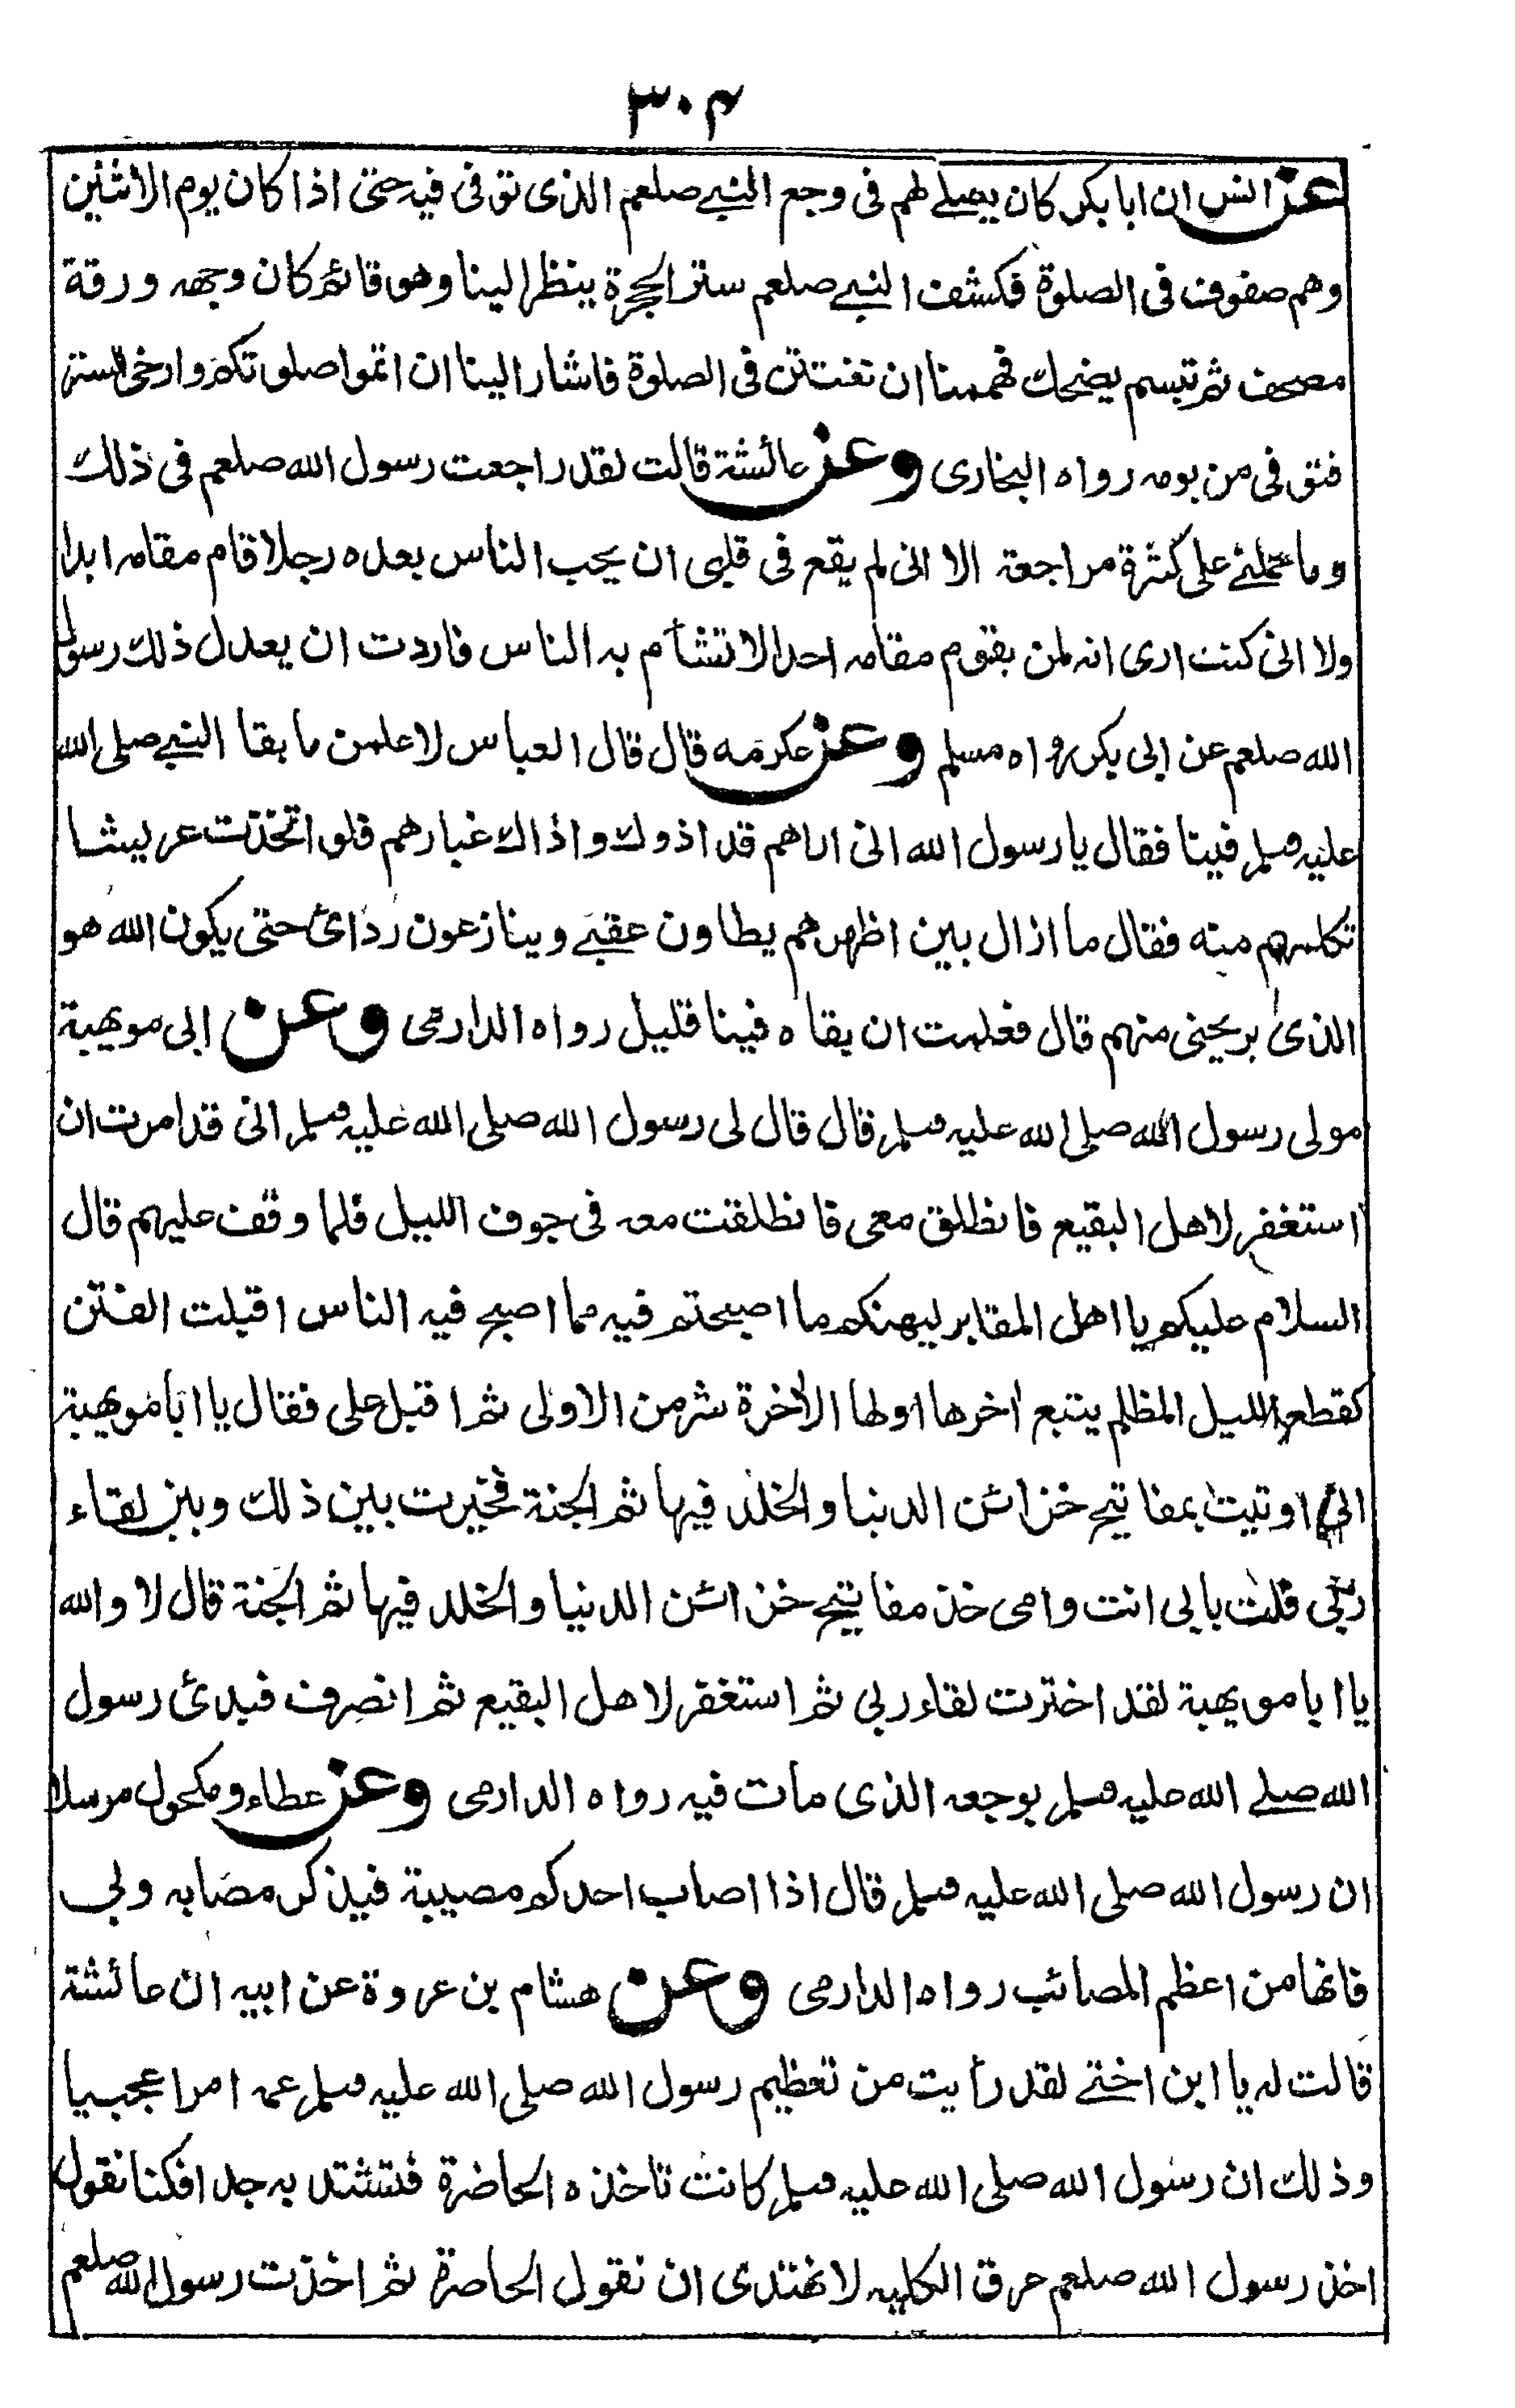 ٣٠٤
عن انس ان ابا بكر كان يصلے لهم فى وجع النبے صلعم الذى توفى فيه حتى اذا كان يوم الاثنين
وهم صفوف فى الصلوة فكشف النبے صلعم ستر الحجرة ينظر الينا وهو قائم كان وجهه ورقة
مصحف ثم تبسم يضحك فهممنا ان نفتتن فى الصلوة فاشار الينا ان اتموا صلوتكم وارخى الستر
فتوفى من يومه رواه البخارى وعن عائشة قالت لقد راجعت رسول الله صلعم فى ذلك
وما حملنے على كثرة مراجعة الا انى لم يقع فى قلبى ان يحب الناس بعده رجلا قام مقامه ابدا
ولا انى كنت ارى انه لمن يقوم مقامه احد الا تشأم به الناس فاردت ان يعدل ذلك رسول
الله صلعم عن ابى بكر رواه مسلم وعن عكرمه قال قال العباس لاعلمن ما بقا النبے صلى الله
عليه وسلم فينا فقال يا رسول الله انى اراهم قد اذوك واذاك غبارهم فلو اتخذت عريشا
تكلمهم منه فقال ما ازال بين اظهرهم يطاون عقبے وينازعون ردائ حتى يكون الله هو
الذى يريحنى منهم قال فعلمت ان بقاه فينا قليل رواه الدارمى وعن ابى مويهبة
مولى رسول الله صلى الله عليه وسلم قال قال لى رسول الله صلى الله عليه وسلم انى قد امرت ان
استغفر لاهل البقيع فانطلق معى فانطلقت معه فى جوف الليل فلما وقف عليهم قال
السلام عليكم يا اهل المقابر ليهنكم ما اصبحتم فيه مما اصبح فيه الناس اقبلت الفتن
كقطع الليل المظلم يتبع اخرها اولها الاخرة شر من الاولى ثم اقبل على فقال يا ابا مويهبة
انى اوتيت بمفاتيح خزائن الدنيا والخلد فيها ثم الجنة فخيرت بين ذلك وبين لقاء
ربى قلت بابى انت وامى خذ مفاتيح خزائن الدنيا والخلد فيها ثم الجنة قال لا والله
يا ابا مويهبة لقد اخترت لقاء ربى ثم استغفر لاهل البقيع ثم انصرف فبدئ رسول
الله صلے الله عليه وسلم بوجعه الذى مات فيه رواه الدارمى وعن عطاء ومكحول مرسلا
ان رسول الله صلى الله عليه وسلم قال اذا اصاب احدكم مصيبة فيذكر مصابه وبى
فانها من اعظم المصائب رواه الدارمى وعن هشام بن عروة عن ابيه ان عائشة
قالت له يا ابن اختے لقد رأيت من تعظيم رسول الله صلى الله عليه وسلم عمه امرا عجيبا
وذلك ان رسول الله صلى الله عليه وسلم كانت تاخذه الخاضرة فتشتد به جدا فكنا نقول
اخذ رسول الله صلعم عرق الكليه لا نهتدى ان نقول الخاصرة ثم اخذت رسول الله صلعم